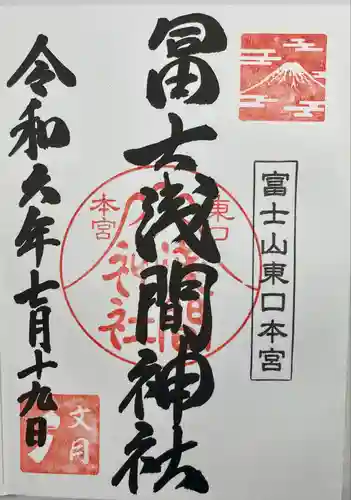 富士山東口本宮
冨士浅間神社
東口
本宮
冨士
浅間
神社
令和六年七月十九日
文月